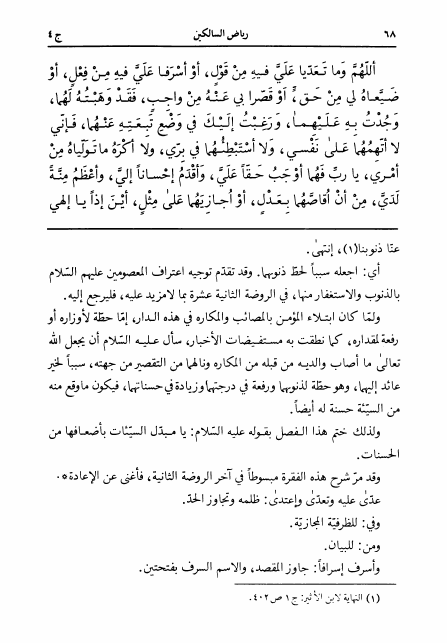 ٦٨ رياض السالكين ج ٤
اَللّهُمَّ وَما تَعَدَّيا عَلَيَّ فيهِ مِنْ قَوْلٍ، أوْ أسْرَفا عَلَيَّ فيهِ مِنْ فِعْلٍ، أوْ
ضَيَّعاهُ لي مِنْ حَقٍّ، أوْ قَصَّرا بي عَنْهُ مِنْ واجِبٍ، فَقَدْ وَهَبْتُهُ لَهُما،
وَجُدْتُ بِهِ عَلَيْهِما، وَرَغِبْتُ إلَيْكَ في وَضْعِ تَبِعَتِهِ عَنْهُما، فَإنّي
لا أتَّهِمُهُما عَلىٰ نَفْسي، وَلا أسْتَبْطِئُهُما في بِرّي، ولا أكْرَهُ ما تَوَلَّياهُ مِنْ
أمْري، يا ربِّ فَهُما أوْجَبُ حَقّاً عَلَيَّ، وَأقْدَمُ إحْساناً إليَّ، وأعْظَمُ مِنَّةً
لَدَيَّ، مِنْ أنْ اُقاصَّهُما بِعَدْلٍ، أوْ اُجازِيَهُما عَلىٰ مِثْلٍ، أيْنَ إذاً يا إلهي
عنّا ذنوبنا(١)، إنتهىٰ.
أي: اجعله سبباً لحطّ ذنوبهما. وقد تقدّم توجيه اعتراف المعصومين عليهم السّلام
بالذنوب والاستغفار منها، في الروضة الثانية عشرة بما لامزيد عليه، فليرجع إليه.
ولمّا كان ابتلاء المؤمن بالمصائب والمكاره في هذه الدار، إمّا حطّة لأوزاره أو
رفعة لمقداره، كما نطقت به مستفيضات الأخبار، سأل عليه السّلام أن يجعل الله
تعالىٰ ما أصاب والديه من قبله من المكاره ونالهما من التقصير من جهته، سبباً لخير
عائد إليهما، وهو حطّة لذنوبهما ورفعة في درجتهما وزيادة في حسناتهما، فيكون ماوقع منه
من السيّئة حسنة له أيضاً.
ولذلك ختم هذا الفصل بقوله عليه السّلام: يا مبدّل السيّئات بأضعافها من
الحسنات.
وقد مرّ شرح هذه الفقرة مبسوطاً في آخر الروضة الثانية، فأغنى عن الإعادة*.
عدّىٰ عليه وتعدّىٰ وإعتدىٰ: ظلمه وتجاوز الحدّ.
وفي: للظرفيّة المجازيّة.
ومن: للبيان.
وأسرف إسرافاً: جاوز المقصد، والاسم السرف بفتحتين.
(١) النهاية لابن الأثير: ج ١ ص ٤٠٢.